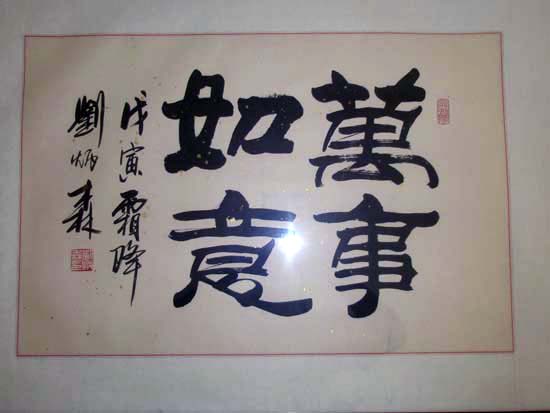 萬事
如意
戊寅霜降
劉炳森